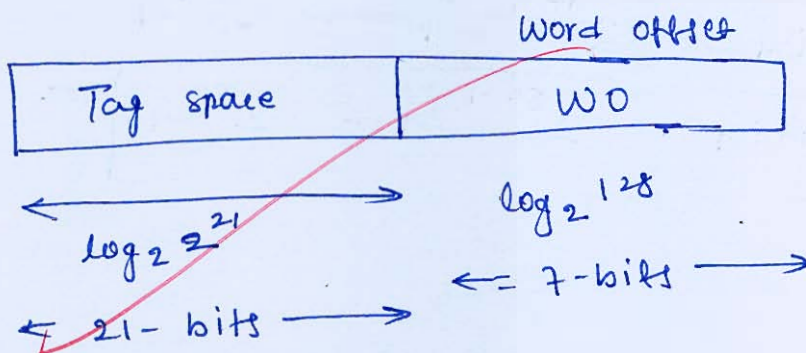 Word offset
Tag space WO
log₂ 2²¹ log₂ 128
21 - bits 7-bits